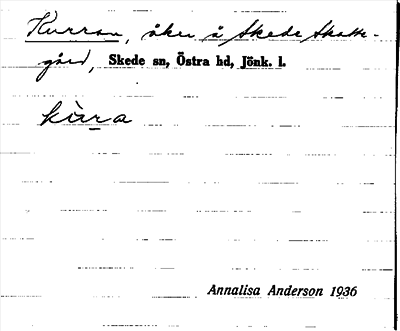 Kurran, åker å Skede Skatte-
gård, Skede sn, Östra hd, Jönk. l.
kùra
Annalisa Anderson 1936